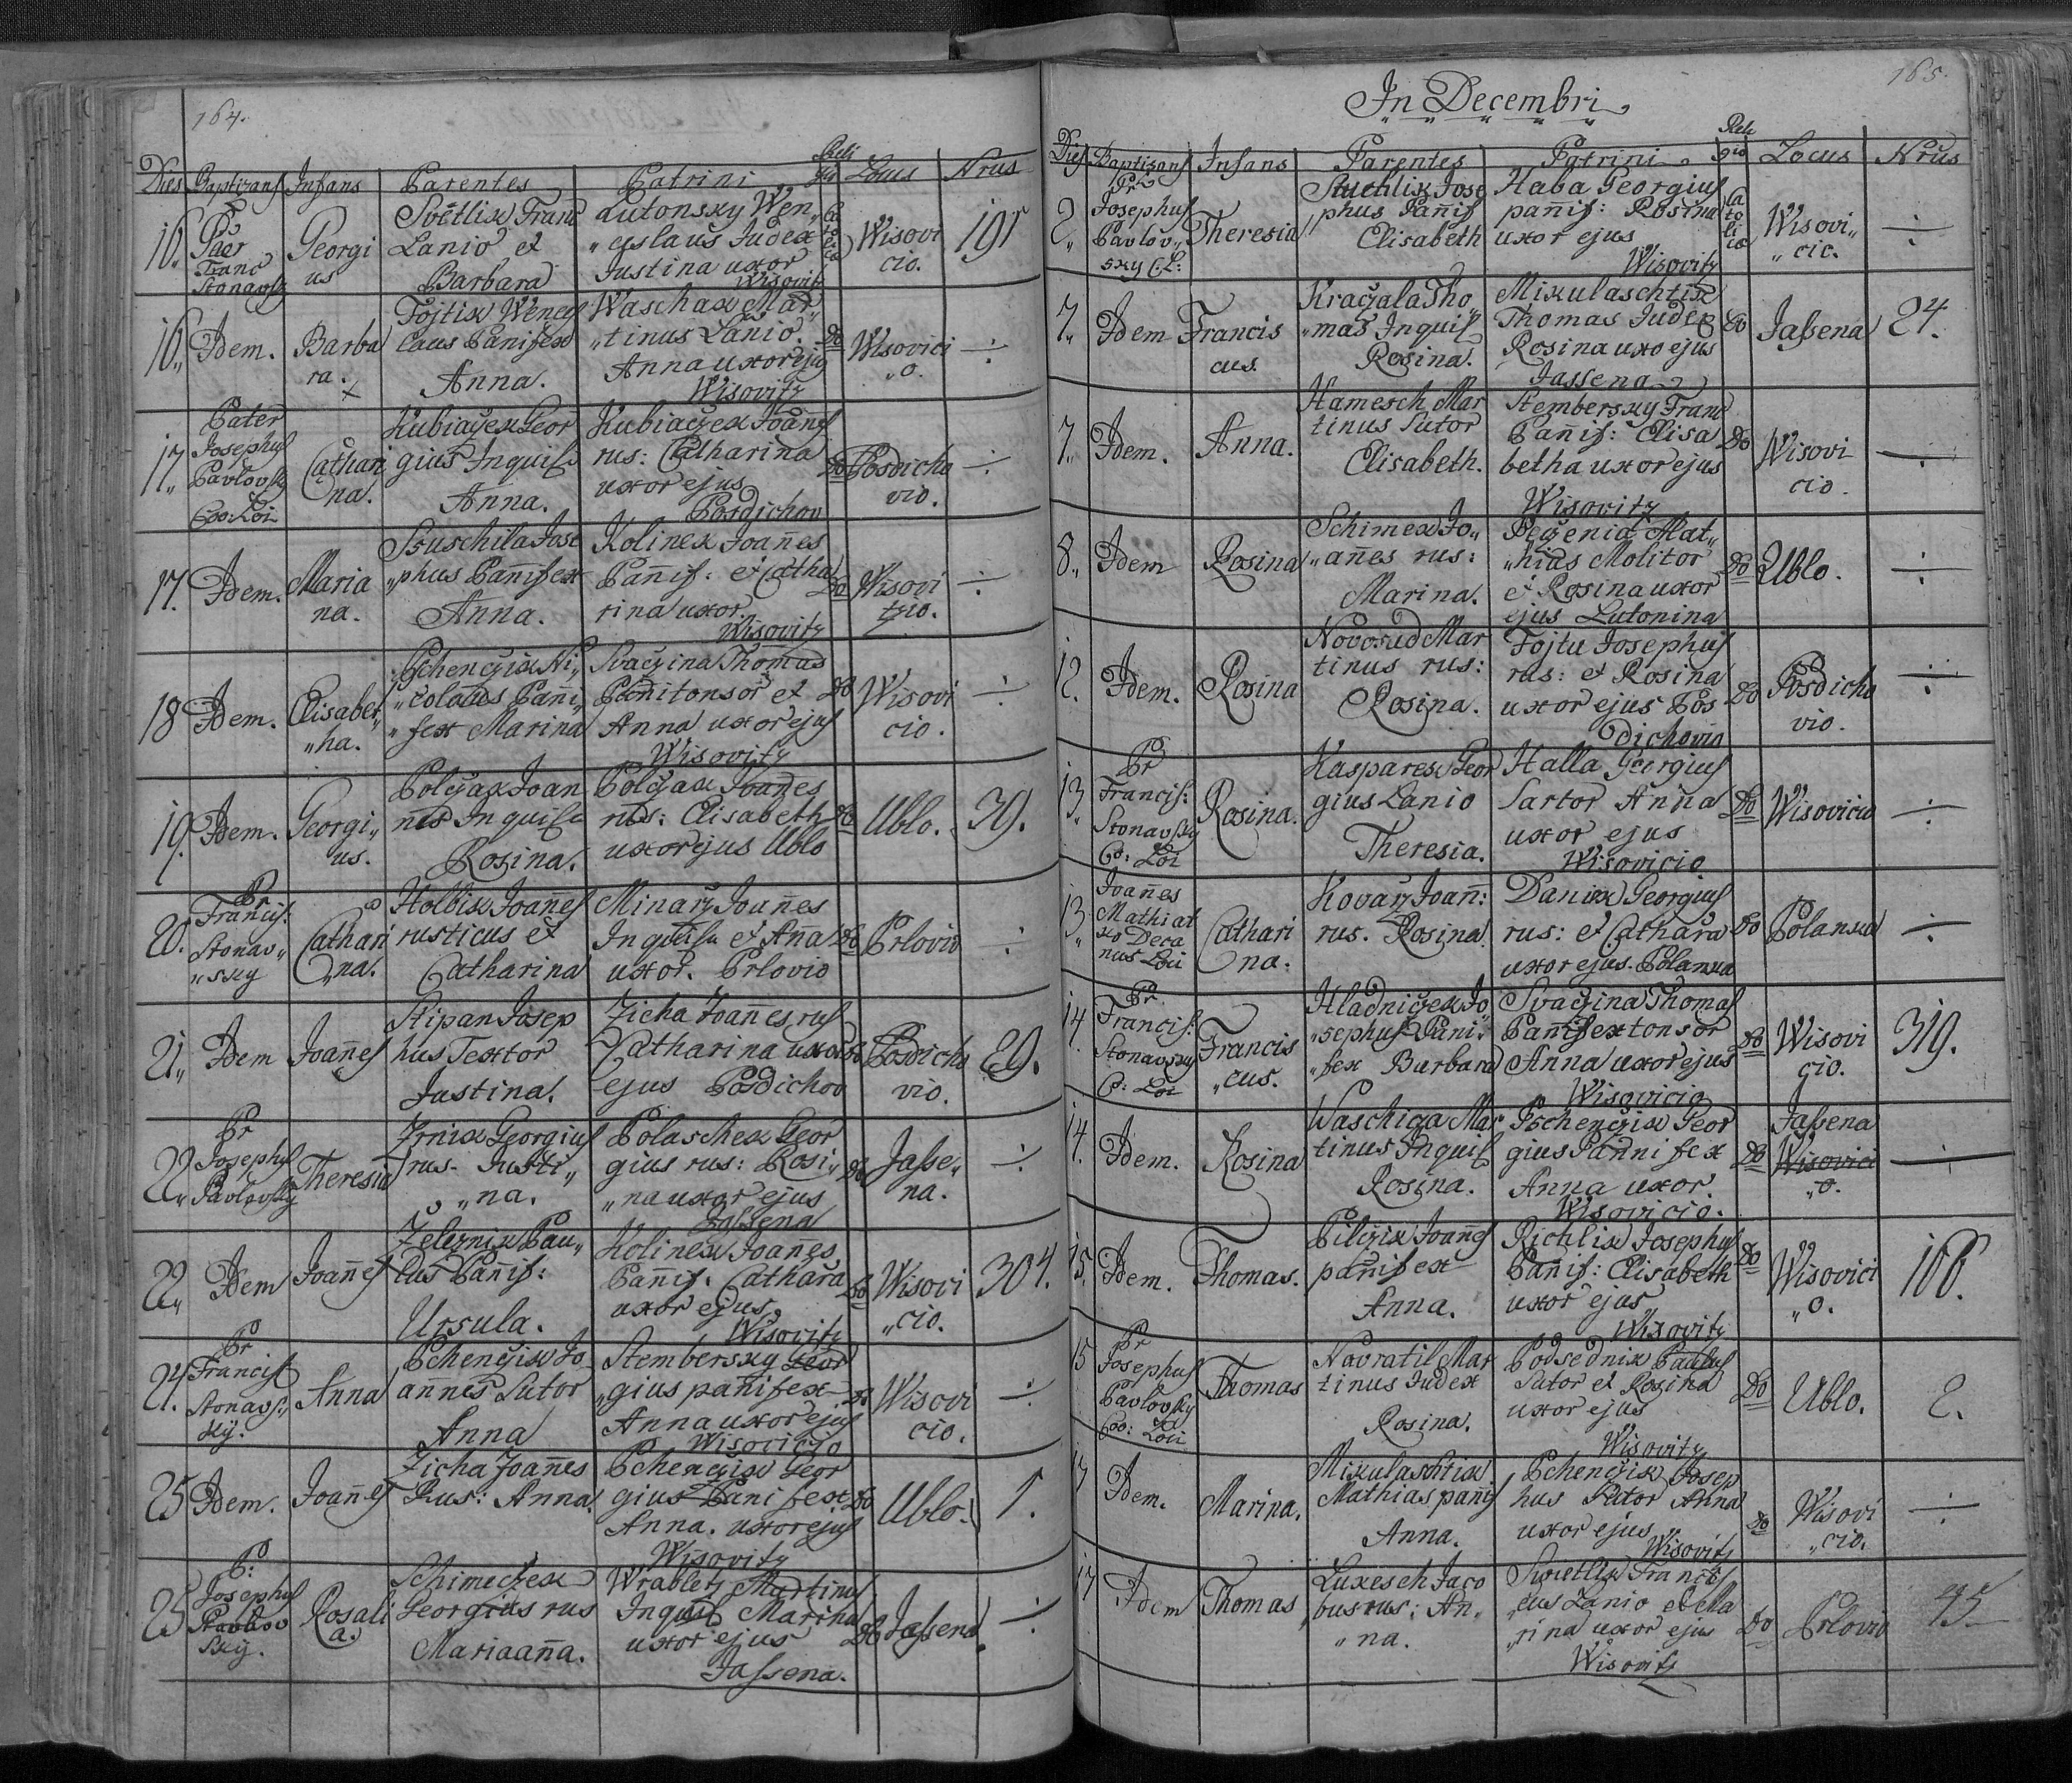 164.
Dies Baptizans Infans Parentes Patrini Reli gio Locus Nrus
16. Pr Pater Franc Stonavsk
Georgi us
Svètlik Franc
Lanio et
Barbara
Lutonsky Wen„
„ceslaus Judex
Justina uxor
Wisovitz
Ca to li ca
Wisovi
cio.
191
16„ Idem. Barba
ra.
x
Fojtik Wences
laus Panifex
Anna.
Waschak Mar„
„tinus Lanio.
Anna uxor ejus
Wisovitz
do
Wisovici
„o.
÷
17„ Pater
Josephus
Pavlovsky
Coo: Loi
Cathari
na.
Kubiaczek Geor
gius Inquis
Anna.
Kubiaczek Joanes
rus: Catharina
uxor ejus
Posdichov
do
Posdicho
vio.
÷
17. Idem. Maria
na.
Sruschila Jose
„phus Pannifex
Anna.
Kolinek Joanes
Pannif: et Catha
rina uxor
Wisovitz
do
Wisovi
tzio.
÷
18 Idem. Elisabet„
„ha.
Pchenczik Ni„
„colaus Panni„
„fex Marina
Svaczina Thomas
Pannitonsor et
Anna uxor ejus
Wisovitz
do
Wisovi
cio.
÷
19. Idem. Georgi„
us.
Polczak Joan
nes Inquis
Rosina.
Polczak Joanes
rus: Elisabeth
uxor ejus Ublo
do
Ublo.
39.
20. Pr
Francis:
Stonav„
„sky
Cathari
na.
Holbik Joannes
rusticus et
Catharina
Minarz Joannes
Inquis et Anna
uxor. Prlovio
do
Prlovio
÷
21„ Idem Joannes
Stipan Josep
hus Textor
Justina.
Zicha Joannes rus
Catharina uxor
ejus Posdichov
do
Posdicho
vio.
29.
22„ Pr
Josephus
Pavlovsky
Theresia
Zrnik Georgius
rus. Justi„
„na.
Polaschek Geor
gius rus: Rosi„
„na uxor ejus
Jassena
do
Jasse„
na.
÷
22„ Idem Joannes
Zeleznik Pau„
lus Pannif:
Ursula.
Kolinek Joannes
Pannif. Cathara
uxor ejus
Wisovitz
do
Wisovi
„cio.
304.
24. Pr
Francis
Stonavs„
ky.
Anna
Pchenczik Jo
annes Sutor
Anna
Stembersky Geor
„gius panifex
Anna uxor ejus
Wisovicio
do
Wisovi
cio.
÷
25 Idem. Joannes
Zicha Joannes
Rus: Anna.
Pchenczik Geor
gius Panifex
Anna. uxor ejus
Wisovitz
do
Ublo.
1.
25 P:
Josephus
Pavlov
sky.
Rosali
a.
Schimeczek
Georgius rus
Mariaanna.
Wrabletz Martinus
Inquis Marina
uxor ejus
Jassena.
do
Jassena.
÷
165.
In Decembri
Dies Baptizans Infans Parentes Patrini Reli gio Locus Nrus
2„ Pr
Josephus
Pavlov„
sky C: L:
Theresia
Stuchlik Jose
phus Pannif
Elisabeth
Haba Georgius
pannif: Rosina
uxor ejus
Wisovitz
Ca to li ca
Wisovi„
„cic.
÷
7„ Idem Francis
cus.
Kraczala Tho
„mas Inquis
Rosina.
Mikulaschtik
Thomas Judex
Rosina uxo ejus
Jassena
do
Jassena
24.
7„ Idem. Anna.
Hamesch Mar
tinus Sutor
Elisabeth.
Stembersky Franc
Pannif: Elisa
betha uxor ejus
Wisovitz
do
Wisovi
cio.
÷
8„ Idem Rosina
Schimek Jo„
„annes rus:
Marina.
Peczenia Mat„
„hias Molitor
et Rosina uxor
ejus Lutonina
do
Ublo.
÷
12. Idem. Rosina
Novosad Mar
tinus rus:
Rosina.
Fojtu Josephus
rus: et Rosina
uxor ejus Pos
dichovio
do
Posdicho
vio.
÷
13„ Pr
Francis:
Stonavsky
Co: Loi
Rosina.
Kasparek Geor
gius Lanio
Theresia.
Halla Georgius
Sartor Anna
uxor ejus
Wisovicio
do
Wisovicio
÷
13„ Joannes
Mathiat
ko Deca
nus Loci
Cathari
na.
Kovarz Joann:
rus. Rosina.
Danik Georgius
rus: et Cathara
uxor ejus. Polanka
do
Polanka
÷
14. Pr
Francis:
Stonavsky
C: Loi
Francis
„cus.
Hladniczek Jo
„sephus Pani„
„fex Barbara
Svaczina Thomas
Pannifex tonsor
Anna uxor ejus
Wisovicio
do
Wisovi
cio.
319.
14. Idem. Rosina
Waschiga Mar
tinus Inquis
Rosina.
Pschenczik Geor
gius Panni fex
Anna uxor.
Wisovicio.
do
Jassena
Wisovici
„o.
÷
15. Idem. Thomas.
Pilczik Joannes
panifex
Anna.
Richlik Josephus
Pannif: Elisabeth
uxor ejus
Wisovitz
do
Wisovici
„o.
166.
15 Pr
Josephus
Pavlovsky
Coo: Loci
Thomas
Navratil Mar
tinus Judex
Rosina.
Podsednik Paulus
Sutor et Rosina
uxor ejus
Wisovitz
do
Ublo.
2.
17 Idem. Marina.
Mikulaschtik
Mathias pannif
Anna.
Pchenczik Josep
hus Sutor Anna
uxor ejus
Wisovitz
do
Wisovi
„cio.
÷
17 Idem Thomas
Lukesch Jaco
bus rus: An„
„na.
Swietlik Francis
„cus Lanio et Ma
„rina uxor ejus
Wisovitz
do
Prlovio
45